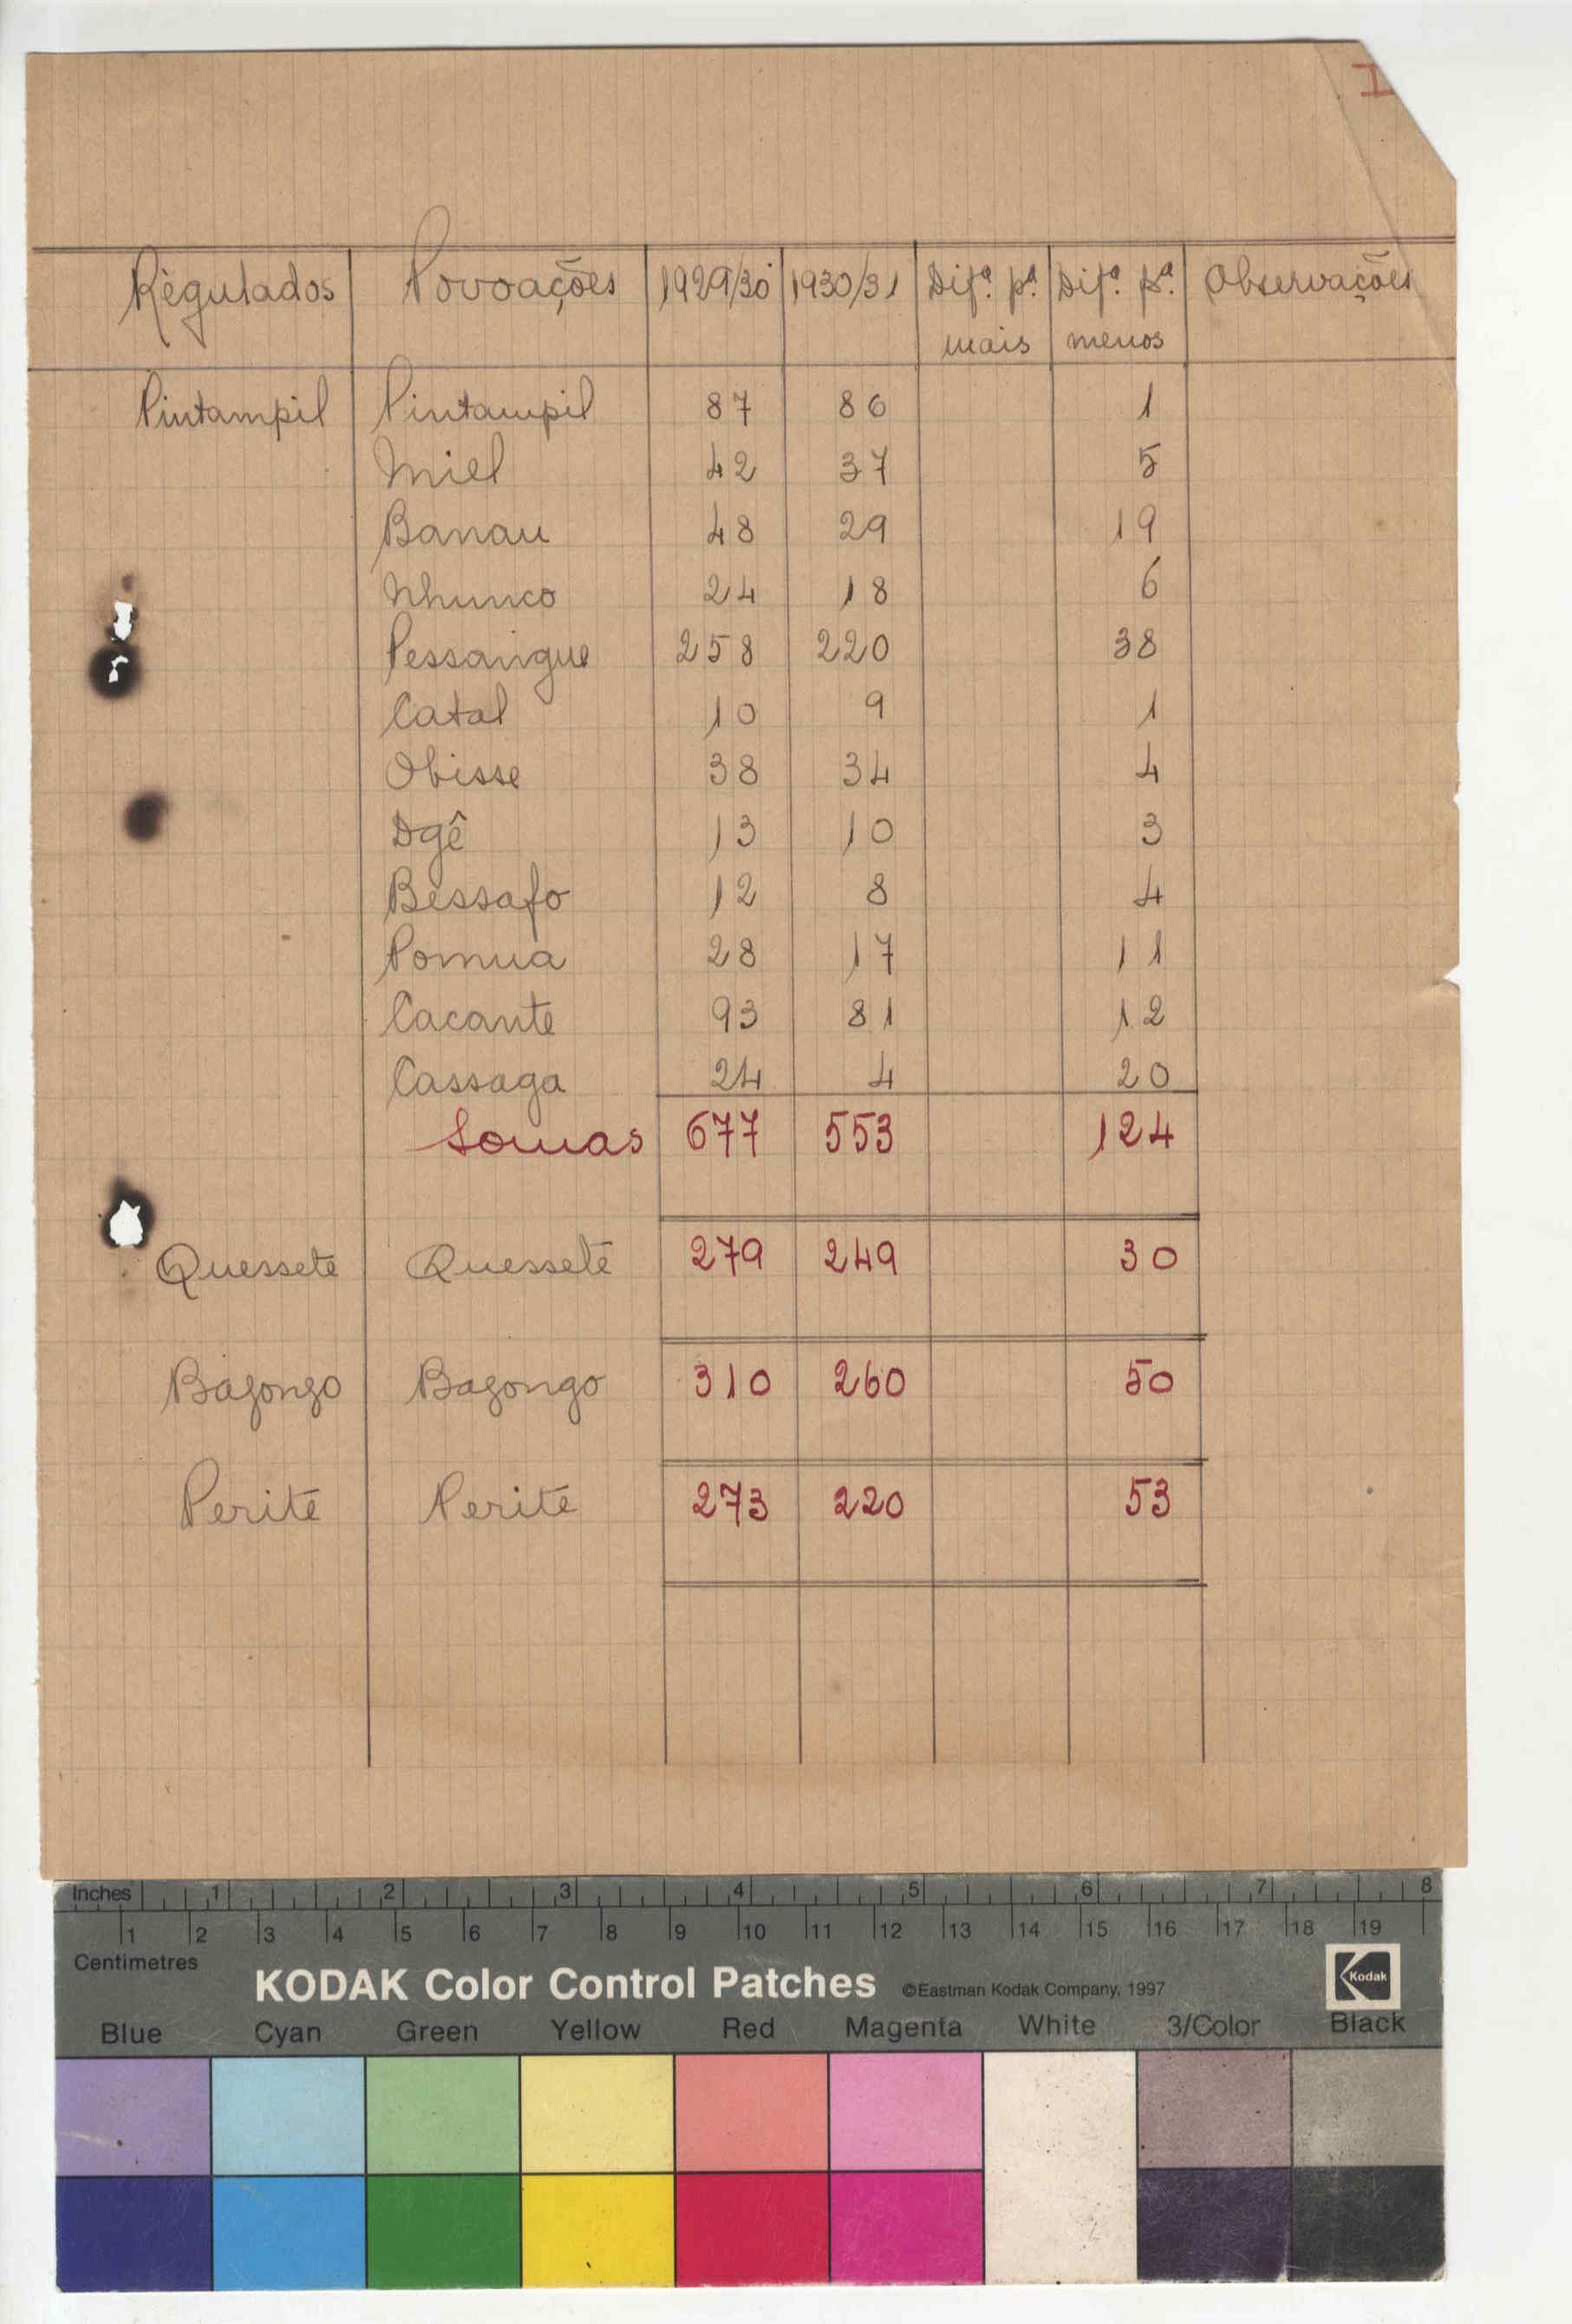 I
Régulados Povoações 1929/30 1930/31 Difª. pª. mais Difª. pª. menos Observações
Pintampil Pintampil 87 86 1
Miel 42 37 5
Banau 48 29 19
Nhunco 24 18 6
Pessangue 258 220 38
Catal 10 9 1
Obisse 38 34 4
Dgê 13 10 3
Bessafo 12 8 4
Pomua 28 17 11
Cacante 93 81 12
Cassaga 24 4 20
Somas 677 553 124
Quessete Quessete 279 249 30
Bagongo Bagongo 310 260 50
Perite Perite 273 220 53
Inches 1 2 3 4 5 6 7 8
1 2 3 4 5 6 7 8 9 10 11 12 13 14 15 16 17 18 19
Centimetres
KODAK Color Control Patches ©Eastman Kodak Company, 1997 Kodak
Blue Cyan Green Yellow Red Magenta White 3/Color Black